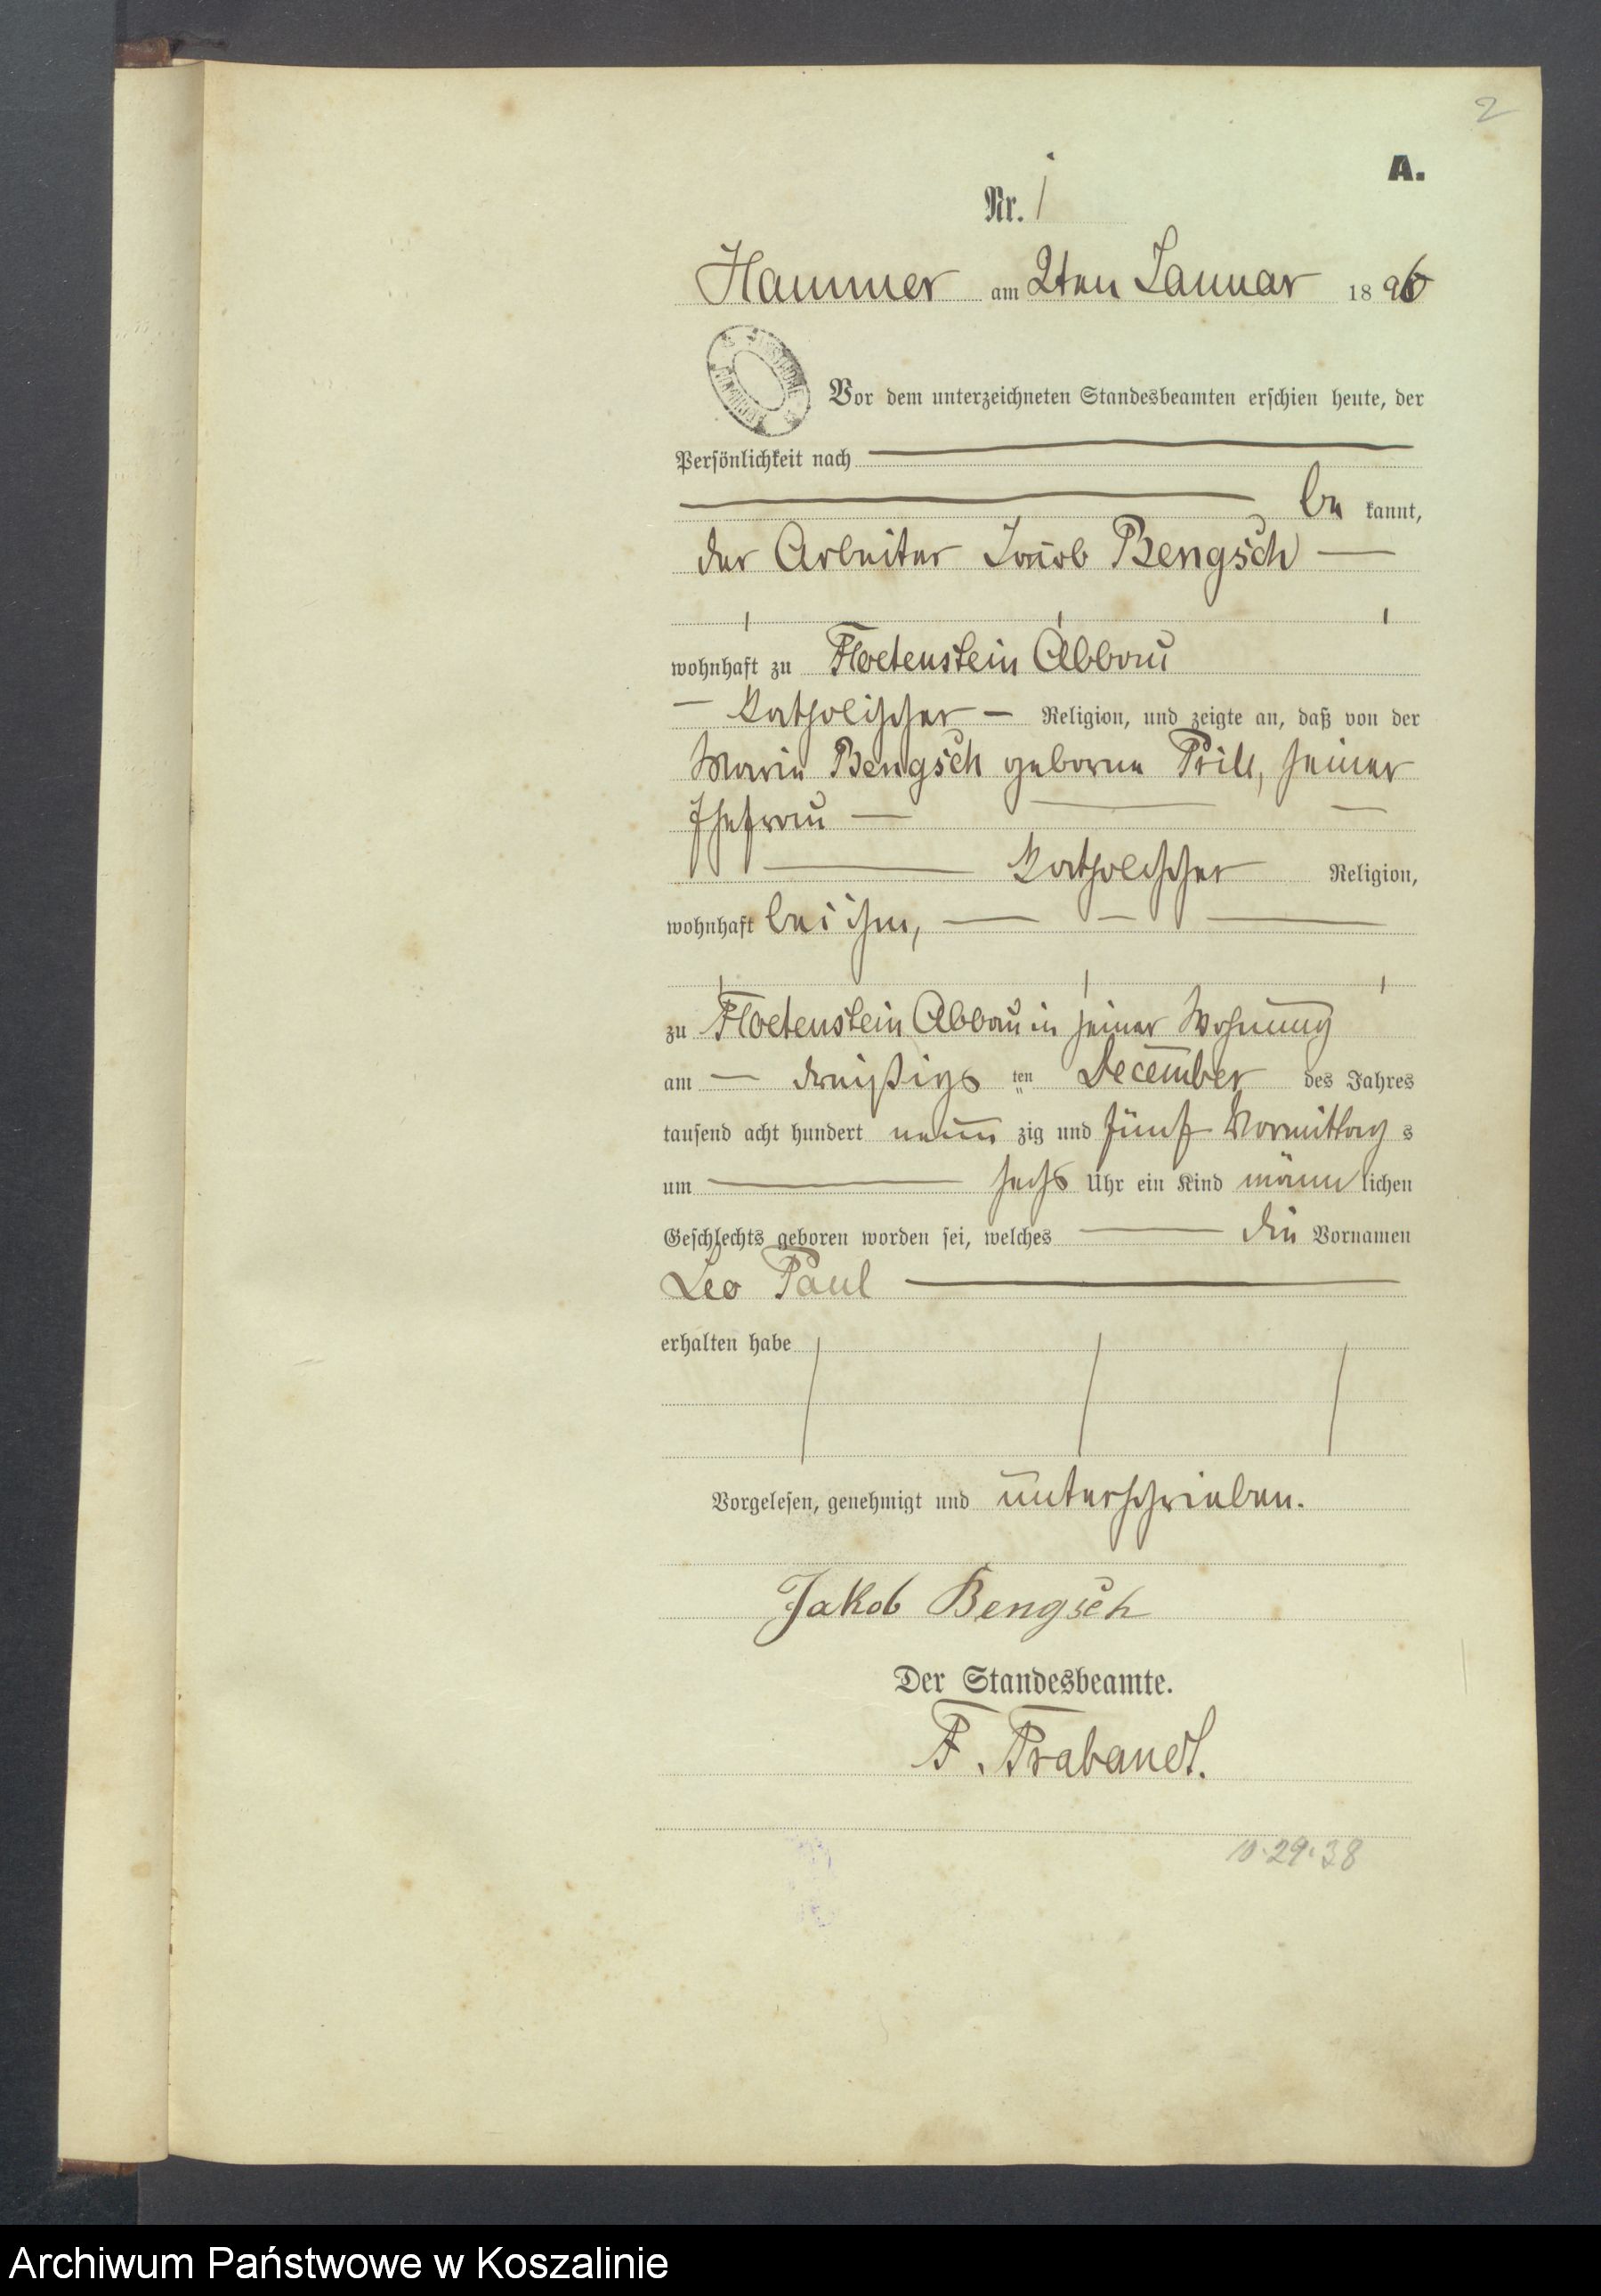 2
A.
Nr. 1
Hammer am 2ten Januar 1896
Vor dem unterzeichneten Standesbeamten erschien heute, der
Persönlichkeit nach
be kannt,
der Arbeiter Jacob Bengsch
wohnhaft zu Floetenstein Abbau
katholischer Religion, und zeigte an, daß von der
Marie Bengsch geborne Prill, seiner
Ehefrau
katholischer Religion,
wohnhaft bei ihm,
zu Floetenstein Abbau in seiner Wohnung
am dreißigs ten December des Jahres
tausend acht hundert neun zig und fünf Vormittag s
um sechs Uhr ein Kind männ lichen
Geschlechts geboren worden sei, welches die Vornamen
Leo Paul
erhalten habe
Vorgelesen, genehmigt und unterschrieben.
Jakob Bengsch
Der Standesbeamte.
F. Trabandt.
10·29·38
Archiwum Państwowe w Koszalinie